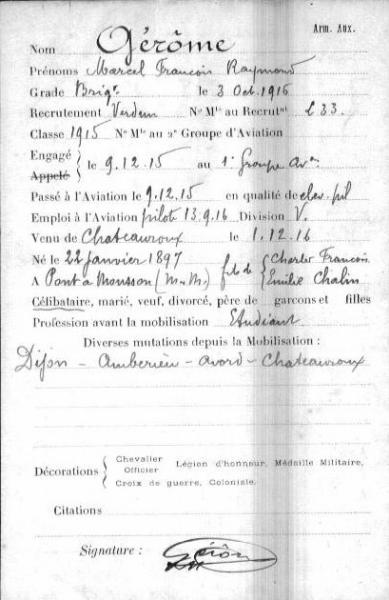 Arm. Aux.
Nom Gérôme
Prénoms Marcel François Raymond
Grade Brigr le 3 Oct. 1916
Recrutement Verdun No Mle au Recrutnt 633
Classe 1915 No Mle au 2e Groupe d'Aviation
Engagé
Appelé
le 9.12.15 au 1r Groupe Avon
Passé à l'Aviation le 9.12.15 en qualité de elev. pil
Emploi à l'Aviation pilote 13.9.16 Division V.
Venu de Chateauroux le 1.12.16
Né le 22 janvier 1897 Charles François
A Pont à Mousson (M.M.) fils de Emilie Chalin
Célibataire, marié, veuf, divorcé, père de garçons et filles
Profession avant la mobilisation Etudiant
Diverses mutations depuis la Mobilisation :
Dijon - Amberieu - Avord - Chateauroux
Chevalier
Officier
Décorations Légion d'honneur, Médaille Militaire,
Croix de guerre, Coloniale.
Citations
Signature : Gérôme